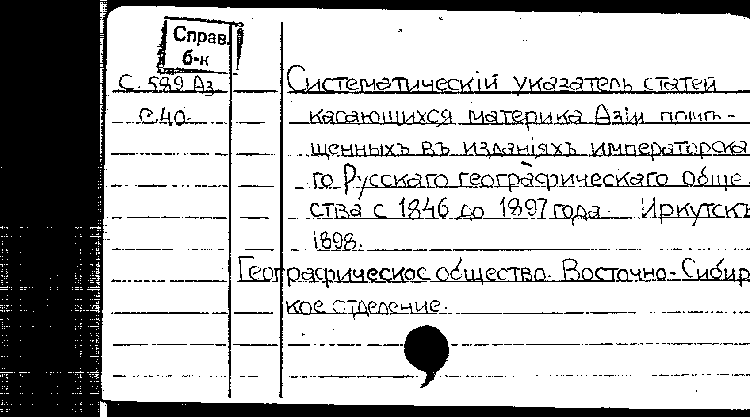 Справ.
б-к
С. 589 Аз
с.40.
Систематическій указатель статей
касающихся материка Азіи помѣ-
щенныхъ въ изданіяхъ императорска
го Русскаго географическаго обще
ства с 1846 до 1897 года. Иркутскъ
1898.
Географическое общество. Восточно-Сибир
кое отделение.